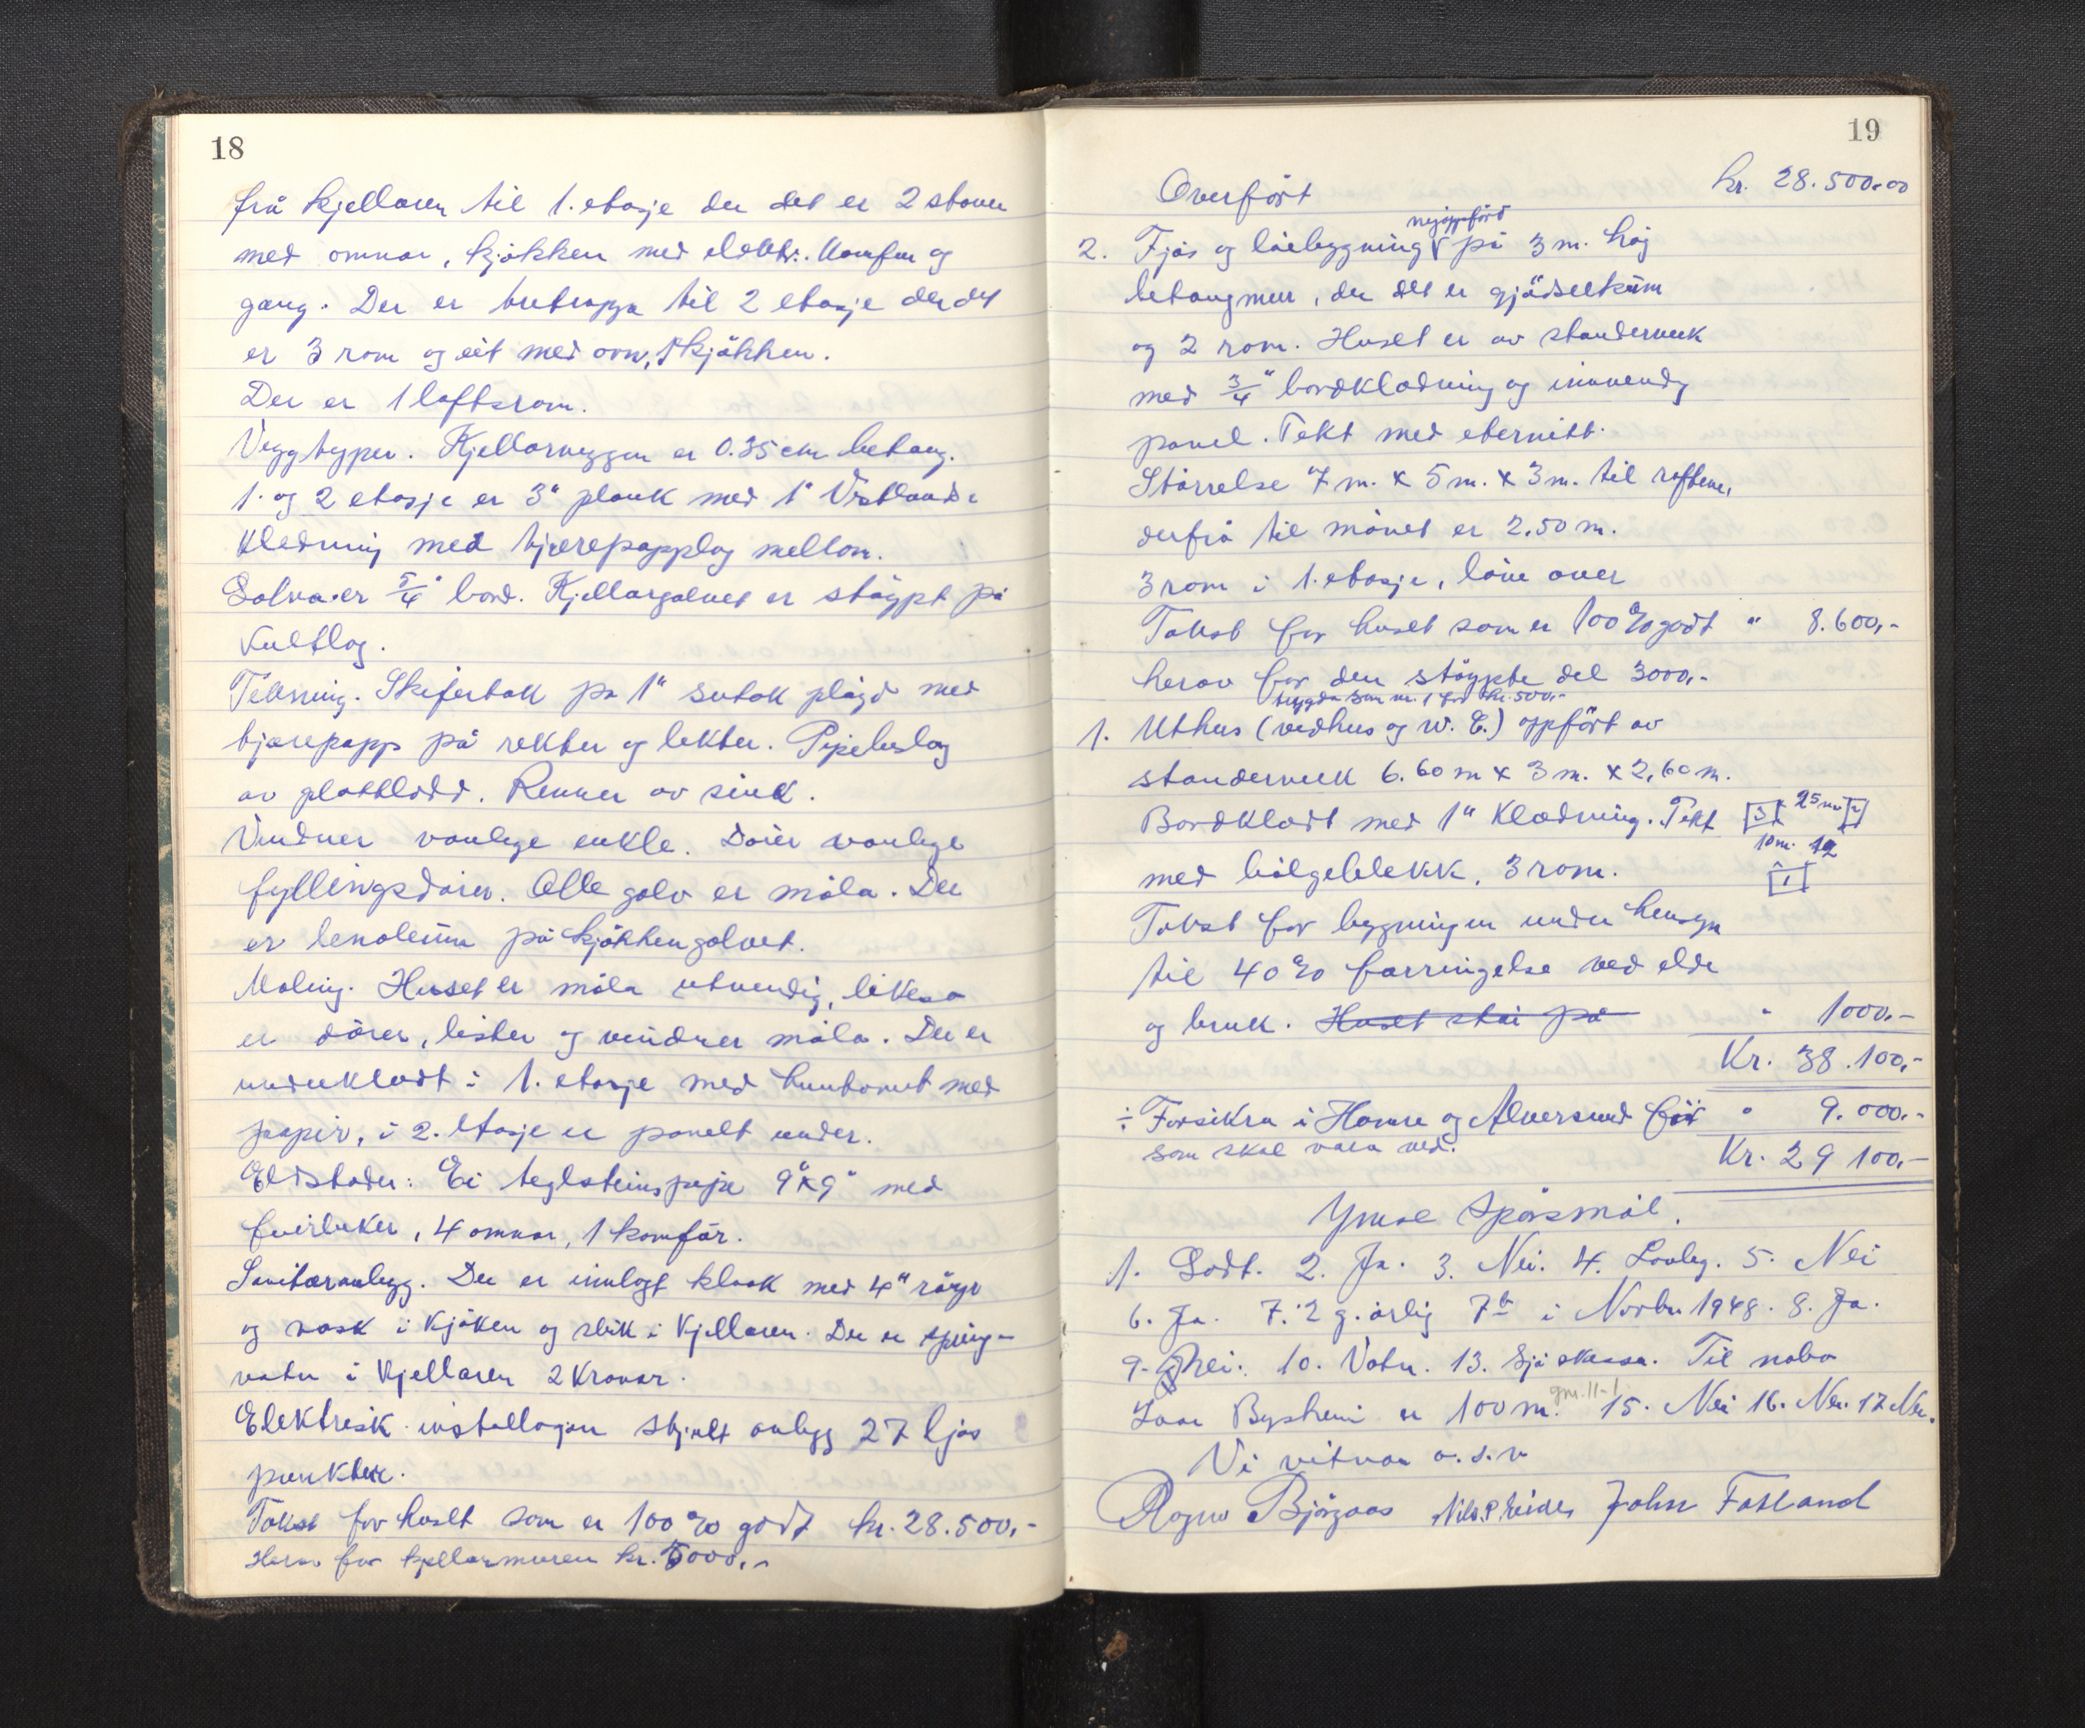 18
frå kjellaren til 1. etasje der det er 2 stover
med omnar, kjøkken med elektr. Komfur og
gang. Der er tretrapp til 2 etasje der det
er 3 rom og eit med ovn, 1 kjøkken.
Der er 1 loftsrom.
Veggtyper. Kjellarveggen er 0.35 cm betong.
1. og 2 etasje er 3" plank med 1" Vestlands
kledning med tjærepapplag mellom.
Golva er 5/4" bord. Kjellargolvet er støypt på
kultlag.
Tekning. Skifertak på 1" sutak pløgd med
tjærepapp på rekter og lekter. Pipebeslag
av platt. Renner av sink.
Vindner vanlege enkle. Dører vanlege
fyllingsdører. Alle golv er måla. Der
er lenoleum på kjøkkengolvet.
Maling. Huset er måla utvendig, likeso
er dører, lister og vindner måla. Der er
underkledt i 1. etasje med huntonit med
papir, i 2. etasje er panelt under.
Eldstader: Ei teglsteinspipe 9"x9" med
feirluker, 4 omnar, 1 komfør.
Sanitæranlegg. Der er innlagt kloak med 4" røyr
og vask i kjøken og slik i kjellaren. Der er spring-
vatn i kjellaren 2 kranar.
Elektrisk installasjon skjult anlegg 27 ljos
punkter.
Takst for huset som er 100 % godt kr. 28.500,-
Herav for kjellarmuren kr. 5000,-
19
Overført kr. 28.500.00
nyoppførd
2. Fjøs og løebygning på 3 m. høg
betongmur, der det er gjødselkum
og 2 rom. Huset er av standerverk
med 3/4" bordkledning og innvendig
panel. Tekt med eternitt.
Størrelse 7 m. x 5 m. x 3 m. til raftene,
derfrå til mønet er 2.50 m.
3 rom i 1. etasje, løve over
Takst for huset som er 100 % godt " 8.600,-
herav for den støypte del 3000,-
trygda som nr. 1 for kr. 500,-
1. Uthus (vedhus og W. C.) oppført av
standerverk 6.60 m x 3 m. x 2,60 m.
Bordkledt med 1" Kledning. Tekt 3 25 m 2
10 m. 12
med bølgeblekk, 3 rom. 1
Takst for bygningen under hensyn
til 40 % forringelse ved elde
og bruk. Huset står på " 1000,-
Kr. 38.100,-
÷ Forsikra i Hamre og Alversund før " 9.000,-
som skal vara ved. Kr. 29 100,-
Ymse Spørsmål.
1. Godt. 2. Ja. 3. Nei. 4. Lovleg. 5. Nei
6. Ja. 7. 2 g. årlig 7de i Novbr 1948. 8. Ja.
9. Nei. 10. Vatn. 13. Sjå skissa. Til nabo
gm. 11-1
Lars Bysheim er 100 m. 15. Nei 16. Nei. 17 Nei.
Vi vitnar o.s.v
Bjørgaas Nils P John Fatland